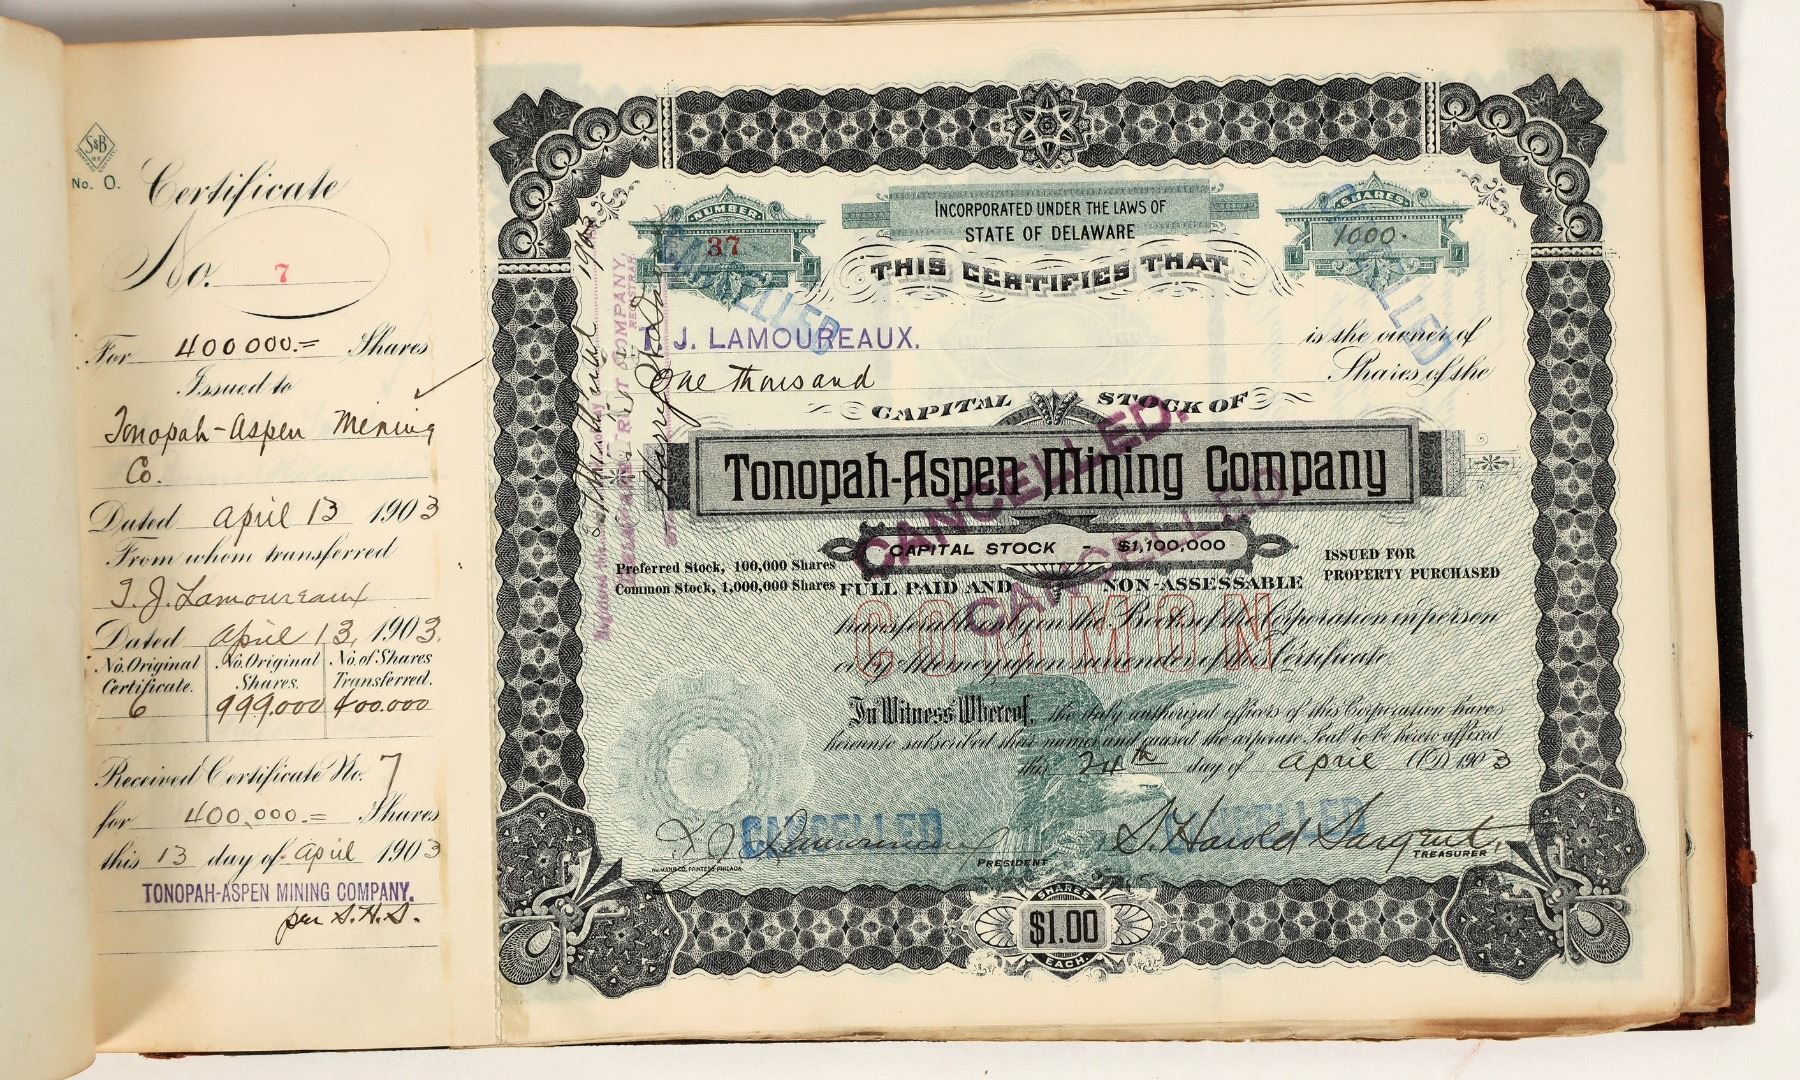 S&B
N.Y.
No. O.
Certificate
No. 7
For 400000.= Shares
Issued to
Tonopah-Aspen Mining
Co.
Dated April 13 1903
From whom transferred
T. J. Lamoureaux
Dated April 13, 1903.
No. Original Certificate. No. Original Shares. No. of Shares Transferred.
6 999.000 400.000
Received Certificate No. 7
for 400,000.= Shares
this 13 day of April 1903
TONOPAH-ASPEN MINING COMPANY.
per S.H.S.
NUMBER
37
INCORPORATED UNDER THE LAWS OF
STATE OF DELAWARE
SHARES
1000.
CANCELLED
CANCELLED
THIS CERTIFIES THAT
T. J. LAMOUREAUX. is the owner of
One thousand Shares of the
CAPITAL STOCK OF
Tonopah-Aspen Mining Company
CANCELLED.
CANCELLED
CAPITAL STOCK - $1,100,000
Preferred Stock, 100,000 Shares
Common Stock, 1,000,000 Shares
FULL PAID AND NON-ASSESSABLE
ISSUED FOR
PROPERTY PURCHASED
COMMON
transferable only on the Books of the Corporation in person
or by Attorney upon surrender of this Certificate.
In Witness Whereof, the duly authorized officers of this Corporation have
hereunto subscribed their names and caused the corporate Seal to be hereto affixed
this 24th day of April A.D. 1903
CANCELLED
CANCELLED
T. J. Lamoureaux
PRESIDENT
S. Harold Sargent,
TREASURER
SHARES
$1.00
EACH.
COMPANY,
REGISTRAR